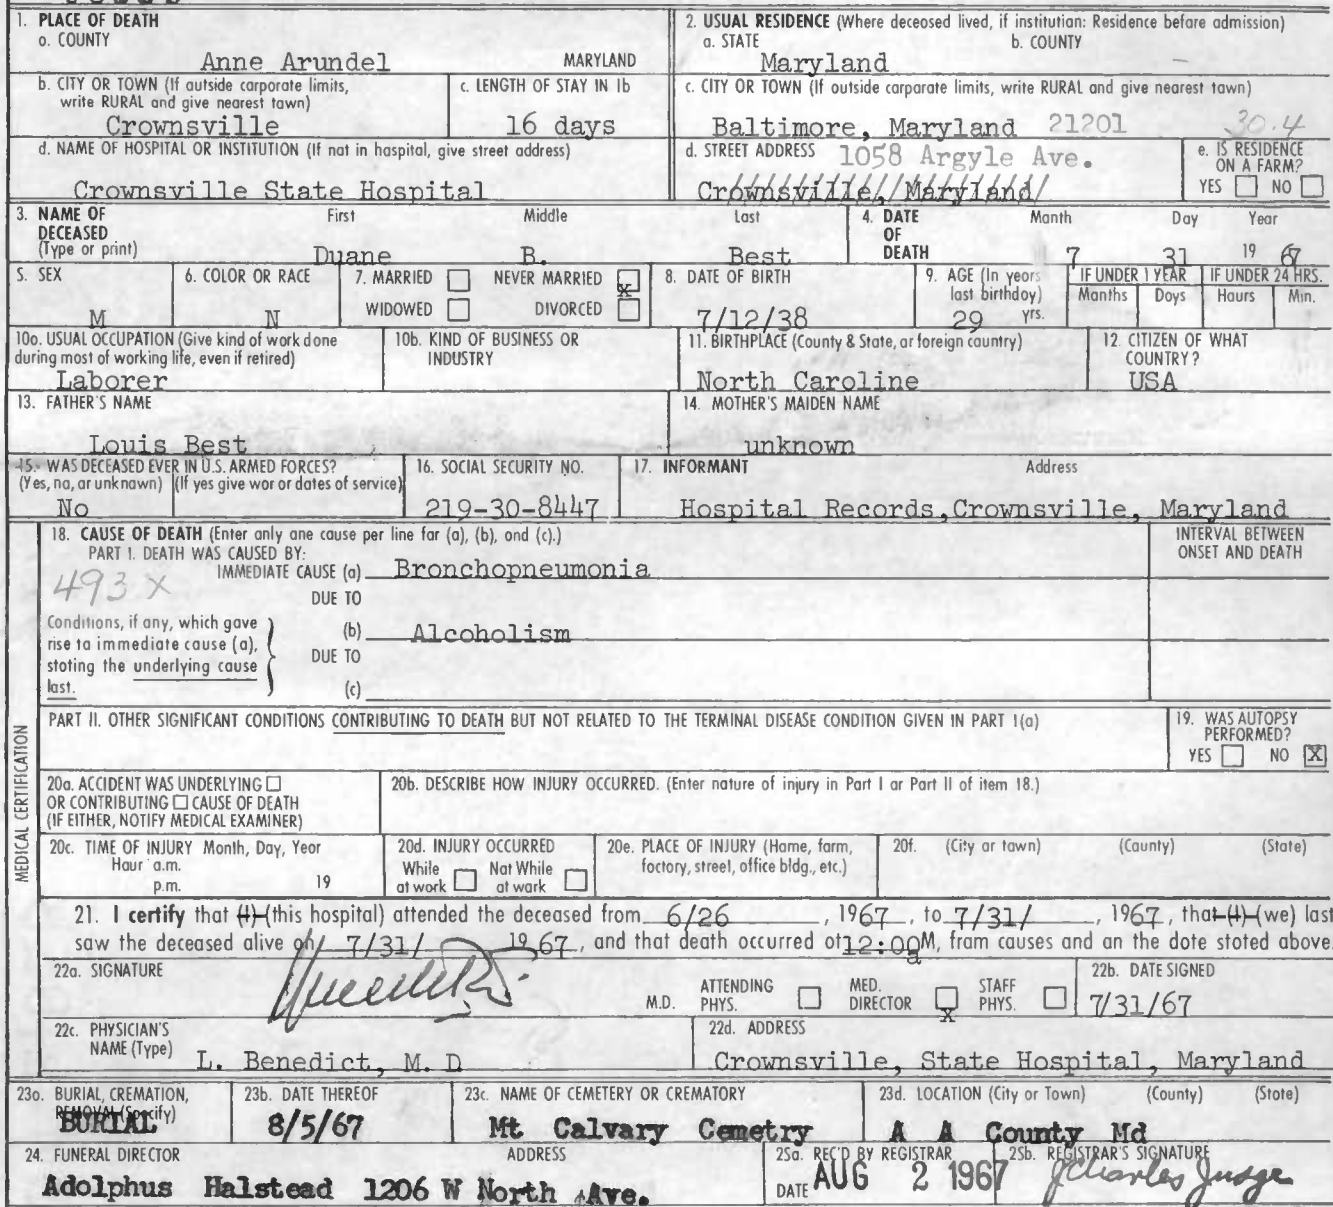 1. PLACE OF DEATH
a. COUNTY
Anne Arundel MARYLAND
2. USUAL RESIDENCE (Where deceased lived, if institution: Residence before admission)
a. STATE b. COUNTY
Maryland
b. CITY OR TOWN (If outside corporate limits, write RURAL and give nearest town)
Crownsville
c. LENGTH OF STAY IN 1b
16 days
c. CITY OR TOWN (If outside corporate limits, write RURAL and give nearest town)
Baltimore, Maryland 21201 30.4
d. NAME OF HOSPITAL OR INSTITUTION (If not in hospital, give street address)
Crownsville State Hospital
d. STREET ADDRESS 1058 Argyle Ave.
Crownsville, Maryland
e. IS RESIDENCE ON A FARM?
YES NO
3. NAME OF DECEASED (Type or print)
First Middle Last
Duane B. Best
4. DATE OF DEATH
Month Day Year
7 31 19 67
5. SEX
M
6. COLOR OR RACE
N
7. MARRIED NEVER MARRIED X
WIDOWED DIVORCED
8. DATE OF BIRTH
7/12/38
9. AGE (In years last birthday)
29 yrs.
IF UNDER 1 YEAR
Months Days
IF UNDER 24 HRS.
Hours Min.
10a. USUAL OCCUPATION (Give kind of work done during most of working life, even if retired)
Laborer
10b. KIND OF BUSINESS OR INDUSTRY
11. BIRTHPLACE (County & State, or foreign country)
North Caroline
12. CITIZEN OF WHAT COUNTRY?
USA
13. FATHER'S NAME
Louis Best
14. MOTHER'S MAIDEN NAME
unknown
15. WAS DECEASED EVER IN U.S. ARMED FORCES?
(Yes, no, or unknown) (If yes give war or dates of service)
No
16. SOCIAL SECURITY NO.
219-30-8447
17. INFORMANT Address
Hospital Records, Crownsville, Maryland
MEDICAL CERTIFICATION
18. CAUSE OF DEATH (Enter only one cause per line for (a), (b), and (c).)
PART I. DEATH WAS CAUSED BY:
IMMEDIATE CAUSE (a) Bronchopneumonia
493 X
DUE TO
Conditions, if any, which gave rise to immediate cause (a), stating the underlying cause last.
(b) Alcoholism
DUE TO
(c)
INTERVAL BETWEEN ONSET AND DEATH
PART II. OTHER SIGNIFICANT CONDITIONS CONTRIBUTING TO DEATH BUT NOT RELATED TO THE TERMINAL DISEASE CONDITION GIVEN IN PART I(a)
19. WAS AUTOPSY PERFORMED?
YES NO X
20a. ACCIDENT WAS UNDERLYING
OR CONTRIBUTING CAUSE OF DEATH
(IF EITHER, NOTIFY MEDICAL EXAMINER)
20b. DESCRIBE HOW INJURY OCCURRED. (Enter nature of injury in Part I or Part II of item 18.)
20c. TIME OF INJURY Month, Day, Year
Hour a.m.
p.m. 19
20d. INJURY OCCURRED
While at work Not While at work
20e. PLACE OF INJURY (Home, farm, factory, street, office bldg., etc.)
20f. (City or town) (County) (State)
21. I certify that (I) (this hospital) attended the deceased from 6/26, 1967, to 7/31/, 1967, that (I) (we) last
saw the deceased alive on 7/31/ 1967, and that death occurred at 12:00 a M, from causes and on the date stated above.
22a. SIGNATURE
M.D. ATTENDING PHYS. MED. DIRECTOR X STAFF PHYS.
22b. DATE SIGNED
7/31/67
22c. PHYSICIAN'S NAME (Type) L. Benedict, M. D
22d. ADDRESS
Crownsville, State Hospital, Maryland
23a. BURIAL, CREMATION, REMOVAL (Specify)
BURIAL
23b. DATE THEREOF
8/5/67
23c. NAME OF CEMETERY OR CREMATORY
Mt Calvary Cemetry
23d. LOCATION (City or Town) (County) (State)
A A County Md
24. FUNERAL DIRECTOR ADDRESS
Adolphus Halstead 1206 W North Ave.
25a. REC'D BY REGISTRAR
DATE AUG 2 1967
25b. REGISTRAR'S SIGNATURE
J Charles Judge